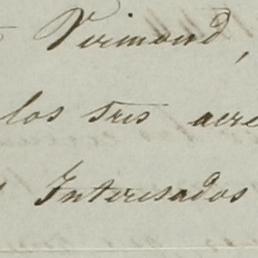 Virmond,
los tres acre
Interesados